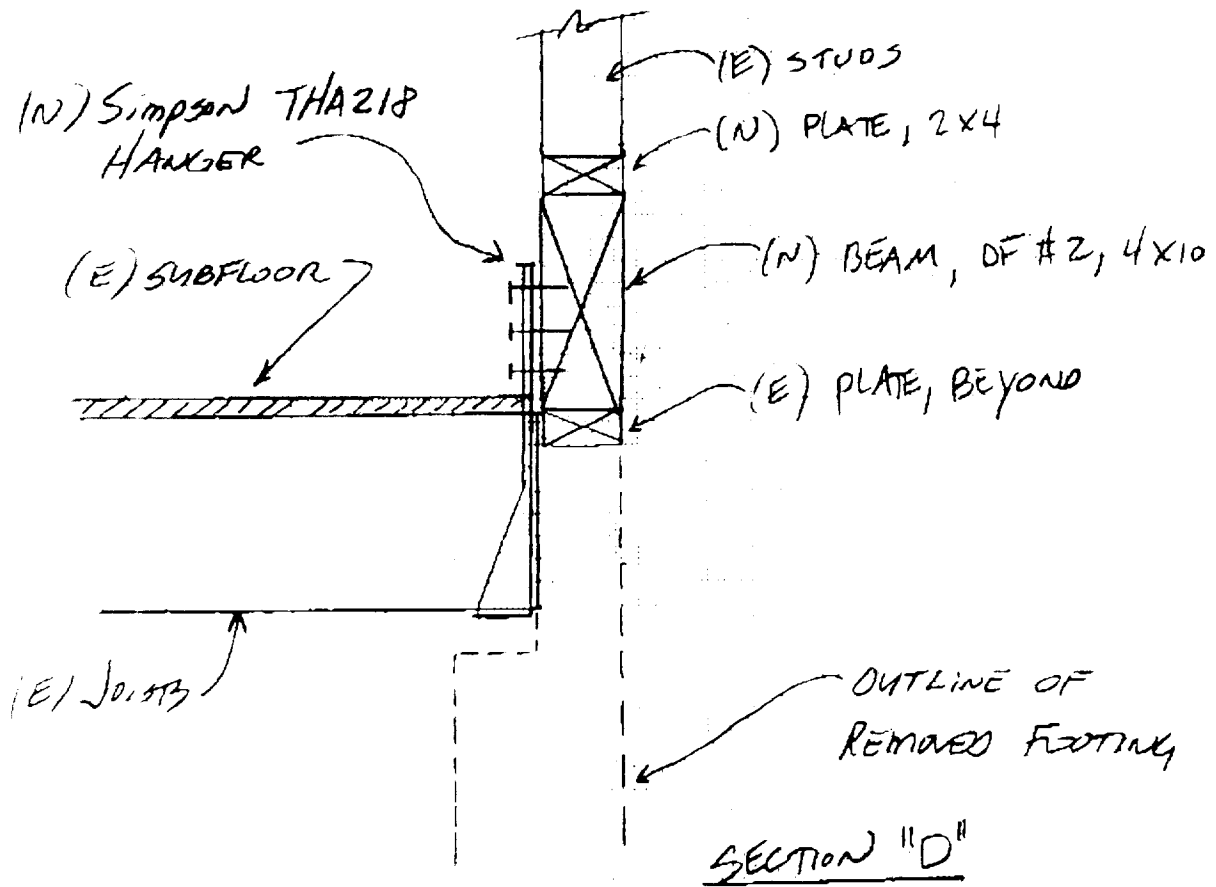 (E) STUDS
(N) Simpson THA218
HANGER
(N) PLATE, 2X4
(E) SUBFLOOR
(N) BEAM, DF #2, 4X10
(E) PLATE, BEYOND
(E) JOISTS
OUTLINE OF
REMOVED FOOTING
SECTION "D"